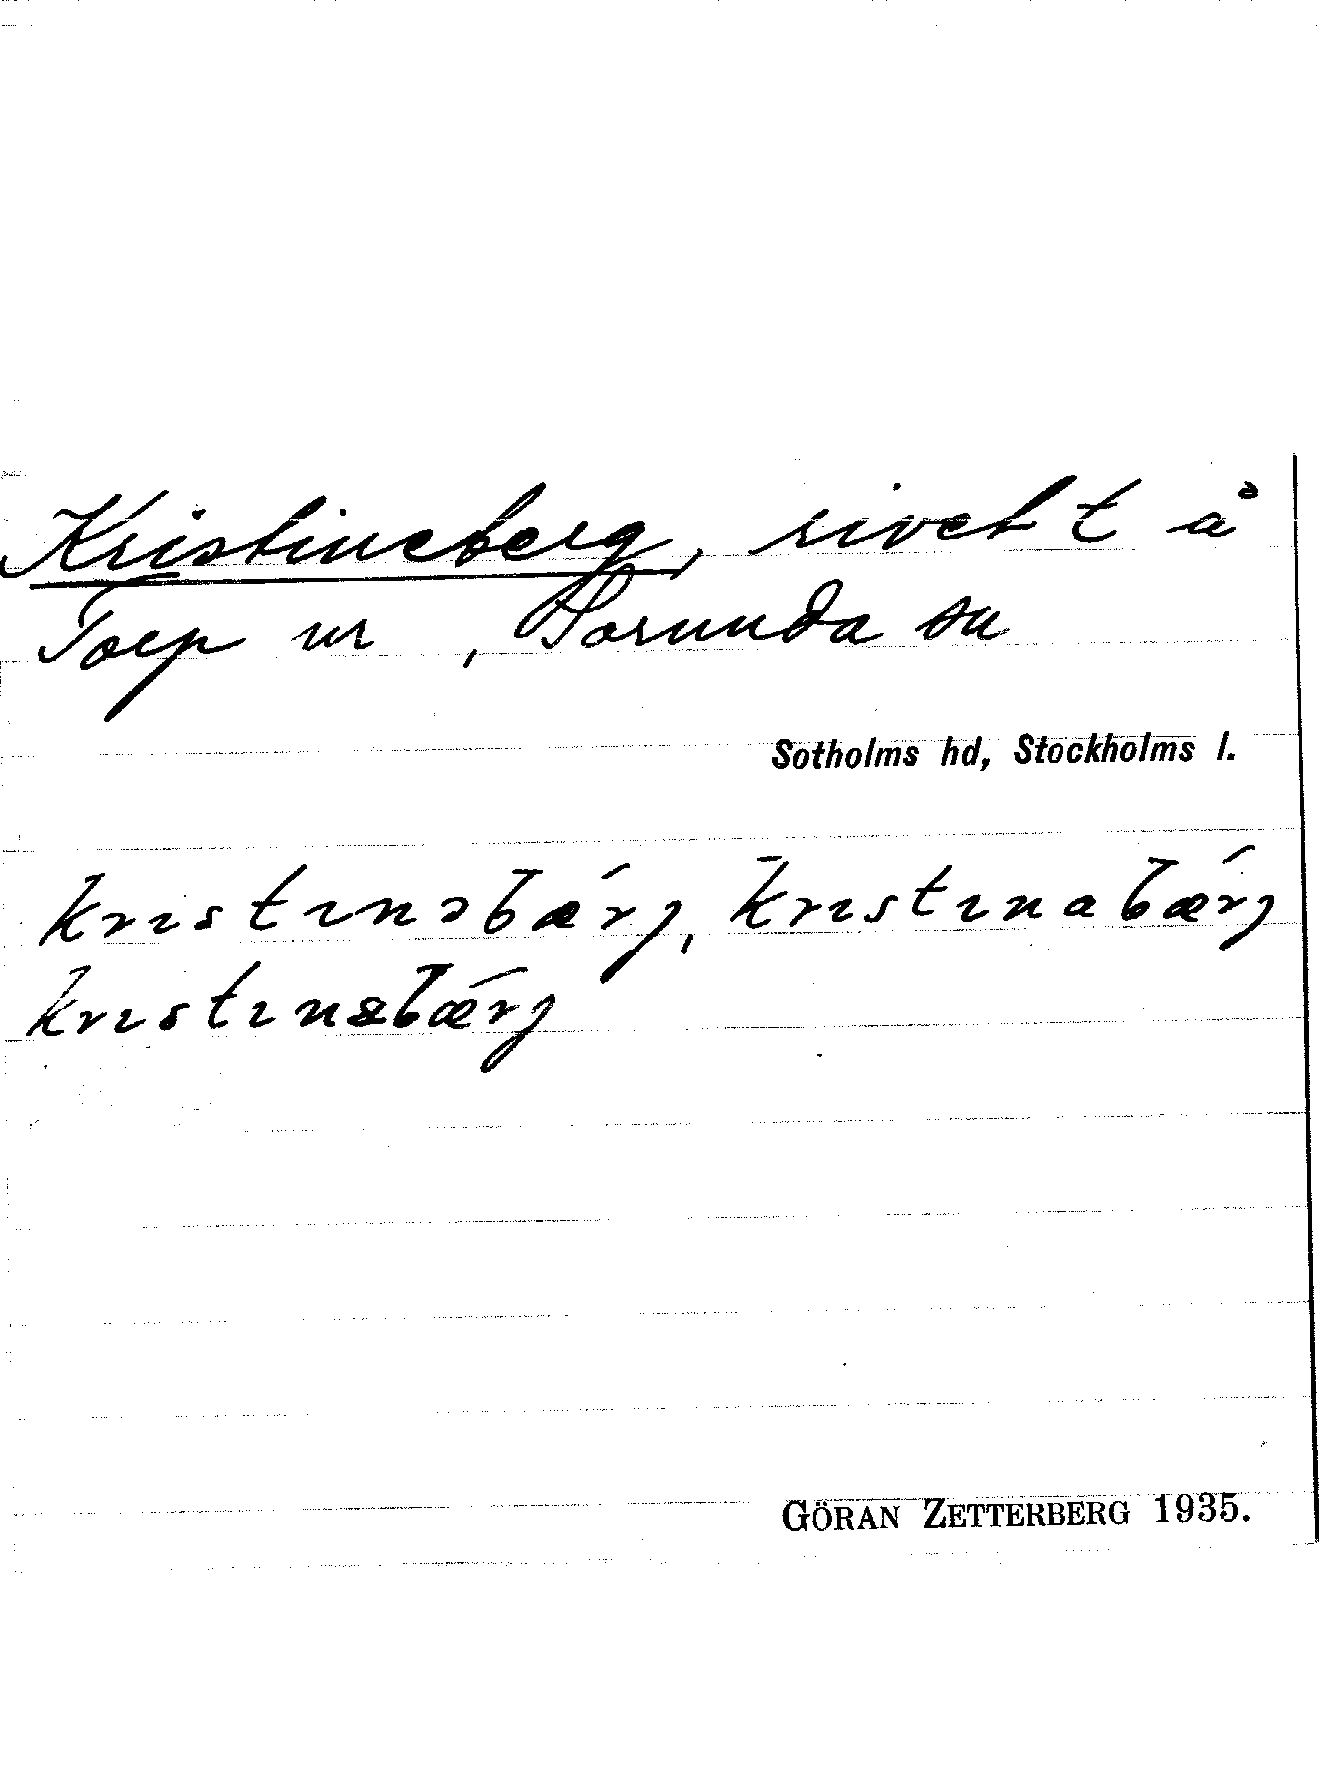 Kristineberg, rivet t å
Torp nr , Sorunda sn
Sotholms hd, Stockholms l.
kristinəbærj, kristinabærj
kristinebærj
GÖRAN ZETTERBERG 1935.